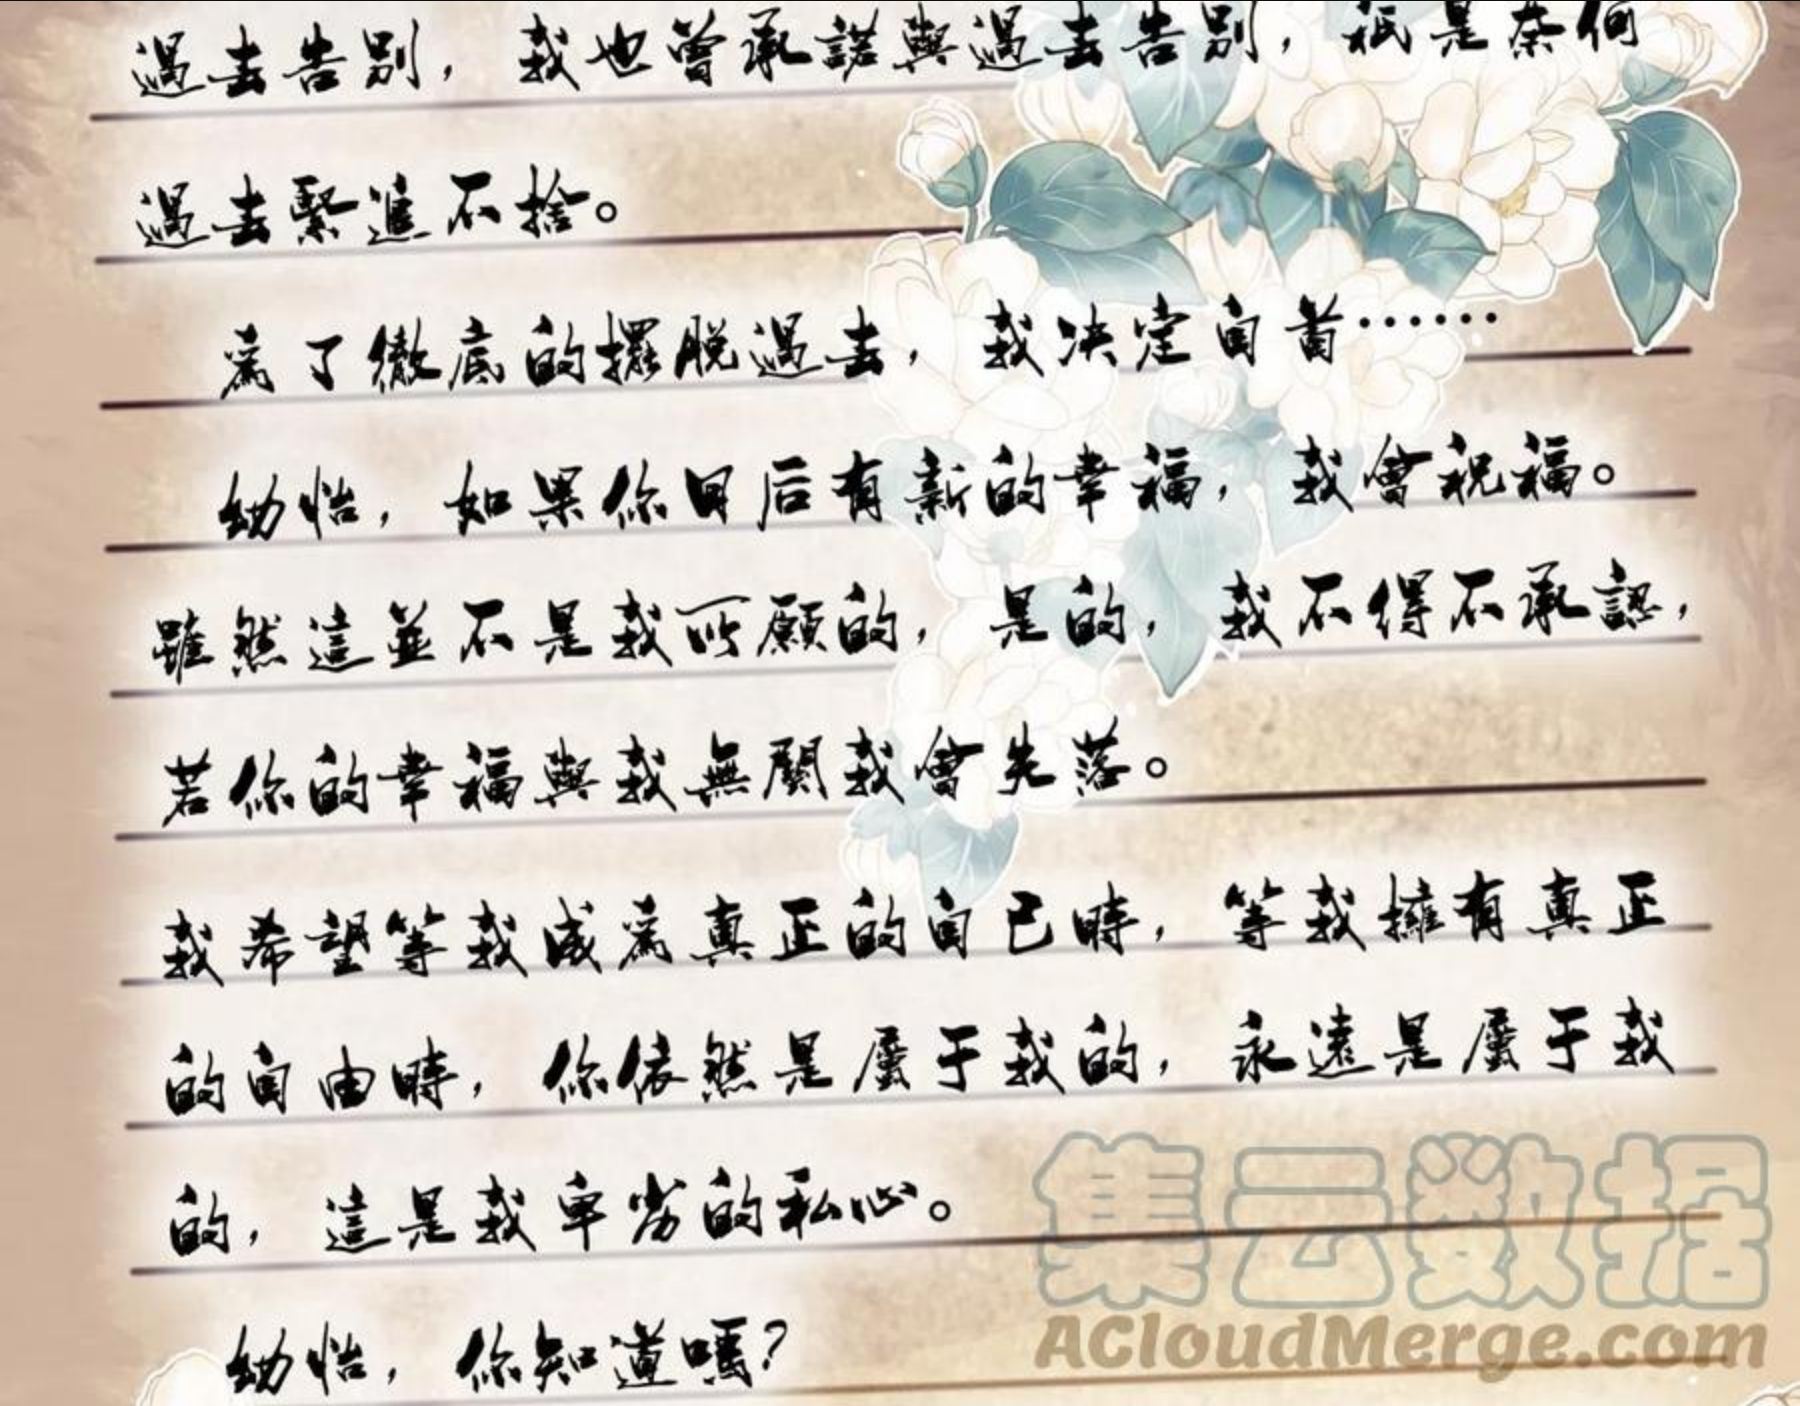 過去告別，我也曾承諾與過去告別，祇是奈何
過去緊追不捨。
為了徹底的擺脫過去，我決定自首……
幼怡，如果你日后有新的幸福，我會祝福。
雖然這並不是我所願的，是的，我不得不承認，
若你的幸福與我無關我會失落。
我希望等我成為真正的自己時，等我擁有真正
的自由時，你依然是屬于我的，永遠是屬于我
的，這是我卑劣的私心。
幼怡，你知道嗎？
集云数据
ACloudMerge.com